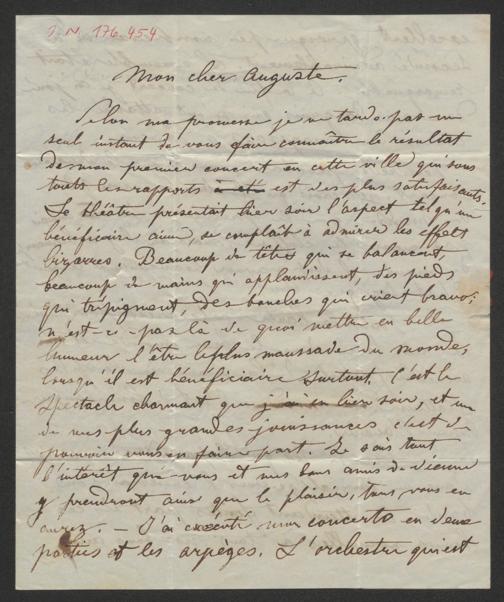 I. N. 176.454
Mon cher Auguste.
Selon ma promesse je ne tarde pas un
seul instant de vous faire connaître le résultat
de mon premier concert en cette ville qui sous
touts les rapports est des plus satisfaisants.
Le théâtre présentait hier soir l'aspect tel qu'un
bénéficiaire aime, se complaît à admirer les effets
bizarres. Beaucoup de têtes qui se balancent,
beaucoup de mains qui applaudissent, des pieds
qui trépignent, des bouches qui crient bravo;
n'est-ce-pas là de quoi mettre en belle
humeur l'être le plus maussade du monde,
lorsqu'il est bénéficiaire surtout. C'est le
spectacle charmant que j'ai eu hier soir, et un
de mes plus grandes jouissances c'est de
pouvoir vous en faire part. Je sais tout
l'intérêt que vous et mes bons amis de Vienne
y prendront ainsi que le plaisir, tous vous en
aurez. — J'ai exécuté mon concerto en deux
parties et les arpèges. L'orchestre qui est